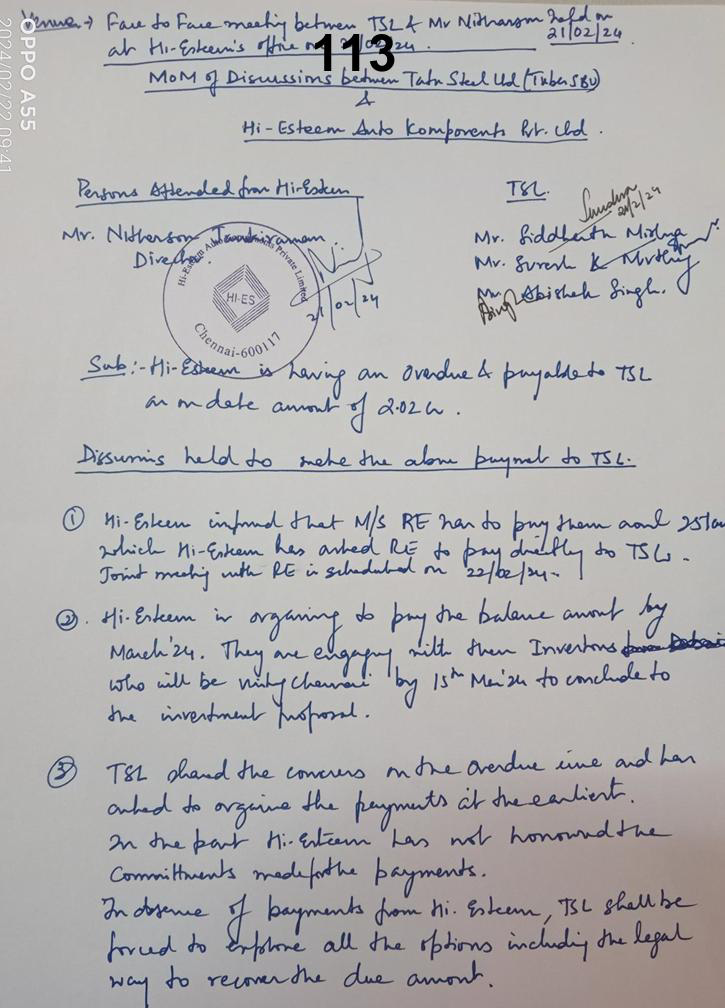 Venue → Face to Face meeting between TSL & Mr Nitharson held on 21/02/24
at Hi-Esteem's office on 21/02/24.
113
MoM of Discussions between Tata Steel Ltd (Tubes SBU)
&
Hi-Esteem Auto Komponents Pvt. Ltd.
Persons Attended from Hi-Esteem
TSL.
21/2/24
Mr. Nitharson
Director.
Mr. Siddharth Mishra
Mr. Suresh K Murthy
Mr. Abishek Singh.
Hi-Esteem Auto Komponents Private Limited
HI-ES
Chennai-600117
21/02/24
Sub:- Hi-Esteem is having an overdue & payable to TSL
as on date amount of 2.02 Cr.
Discussions held to make the above payment to TSL.
① Hi-Esteem informed that M/S RE has to pay them 25
which Hi-Esteem has asked RE to pay directly to TSL.
Joint meeting with RE is scheduled on 22/02/24.
②. Hi-Esteem is organising to pay the balance amount by
March'24. They are engaging with their Investors
who will be visiting Chennai by 15th Mar'24 to conclude to
the investment proposal.
③ TSL shared the concerns on the overdue issue and has
asked to organise the payments at the earliest.
In the past Hi-Esteem has not honoured the
Committments made for the payments.
In absence of payments from Hi. Esteem, TSL shall be
forced to explore all the options including the legal
way to recover the due amount.
OPPO A55
2024/02/22 09:41